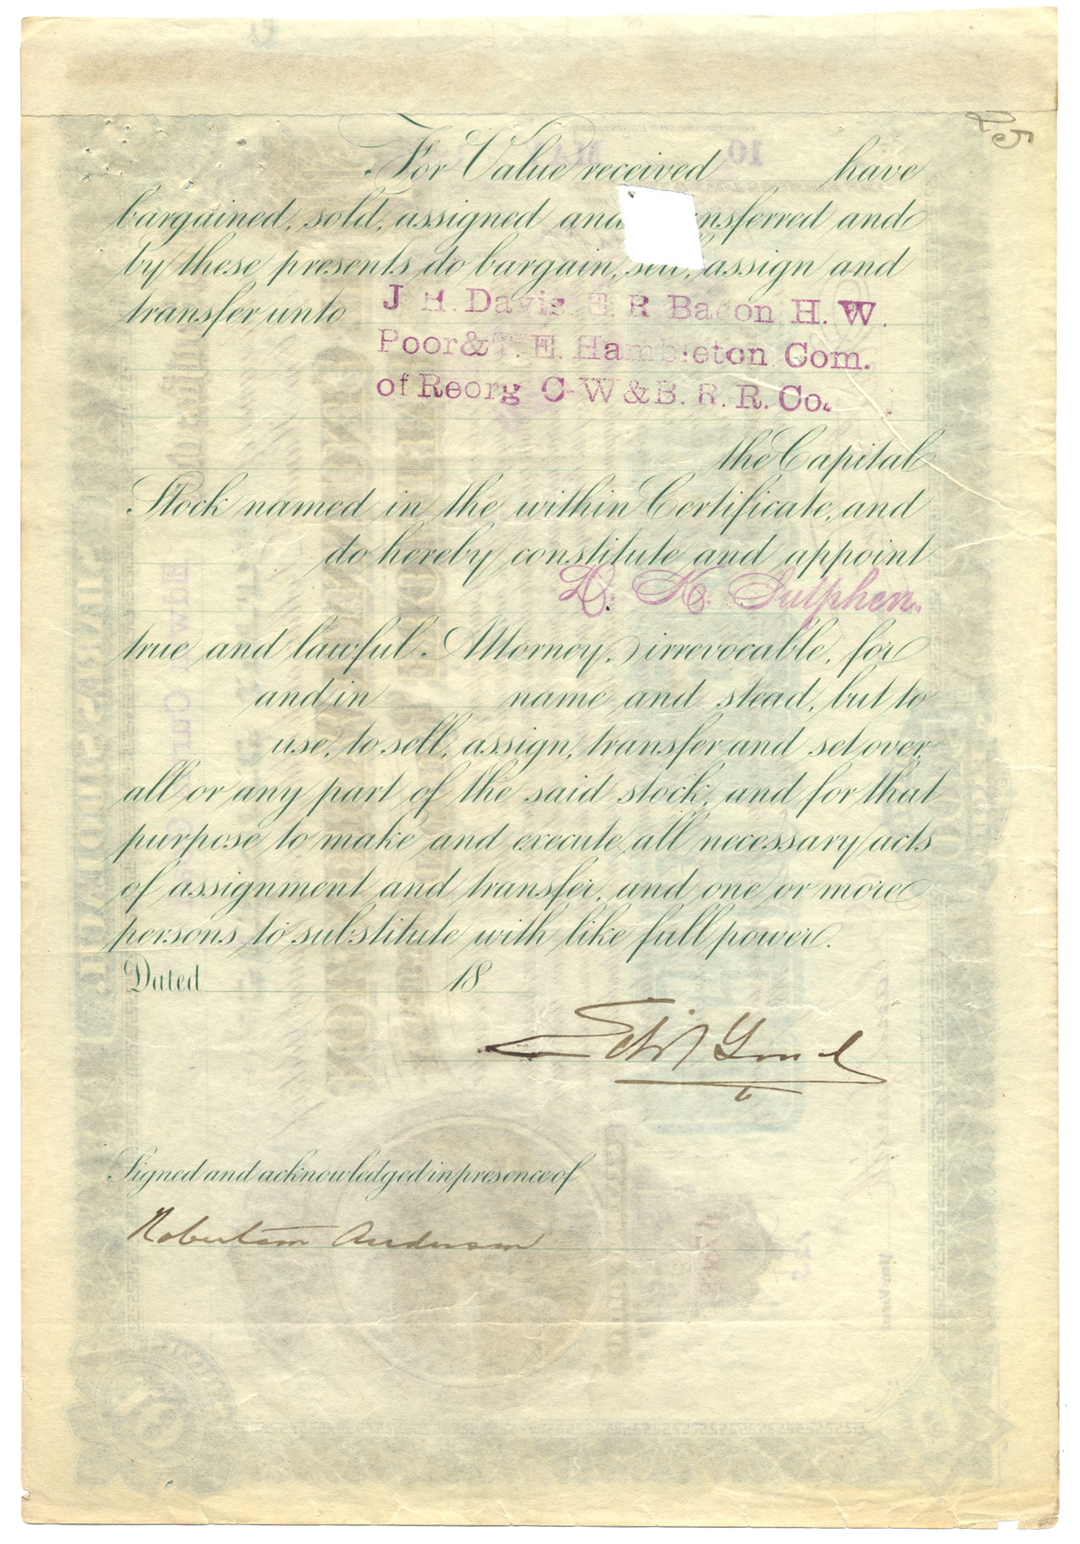 For Value received have
bargained, sold, assigned and nsferred and
by these presents do bargain, sell, assign and
transfer unto J. H. Davis. E. R. Bacon H. W.
Poor & T. E. Hambleton Com.
of Reorg C-W & B. R. R. Co.
the Capital
Stock named in the within Certificate, and
do hereby constitute and appoint
D. K. Sutphen.
true and lawful Attorney, irrevocable, for
and in name and stead, but to
use, to sell, assign, transfer and set over
all or any part of the said stock, and for that
purpose to make and execute all necessary acts
of assignment and transfer, and one or more
persons to substitute with like full power.
Dated 18
Signed and acknowledged in presence of
Robertson Anderson